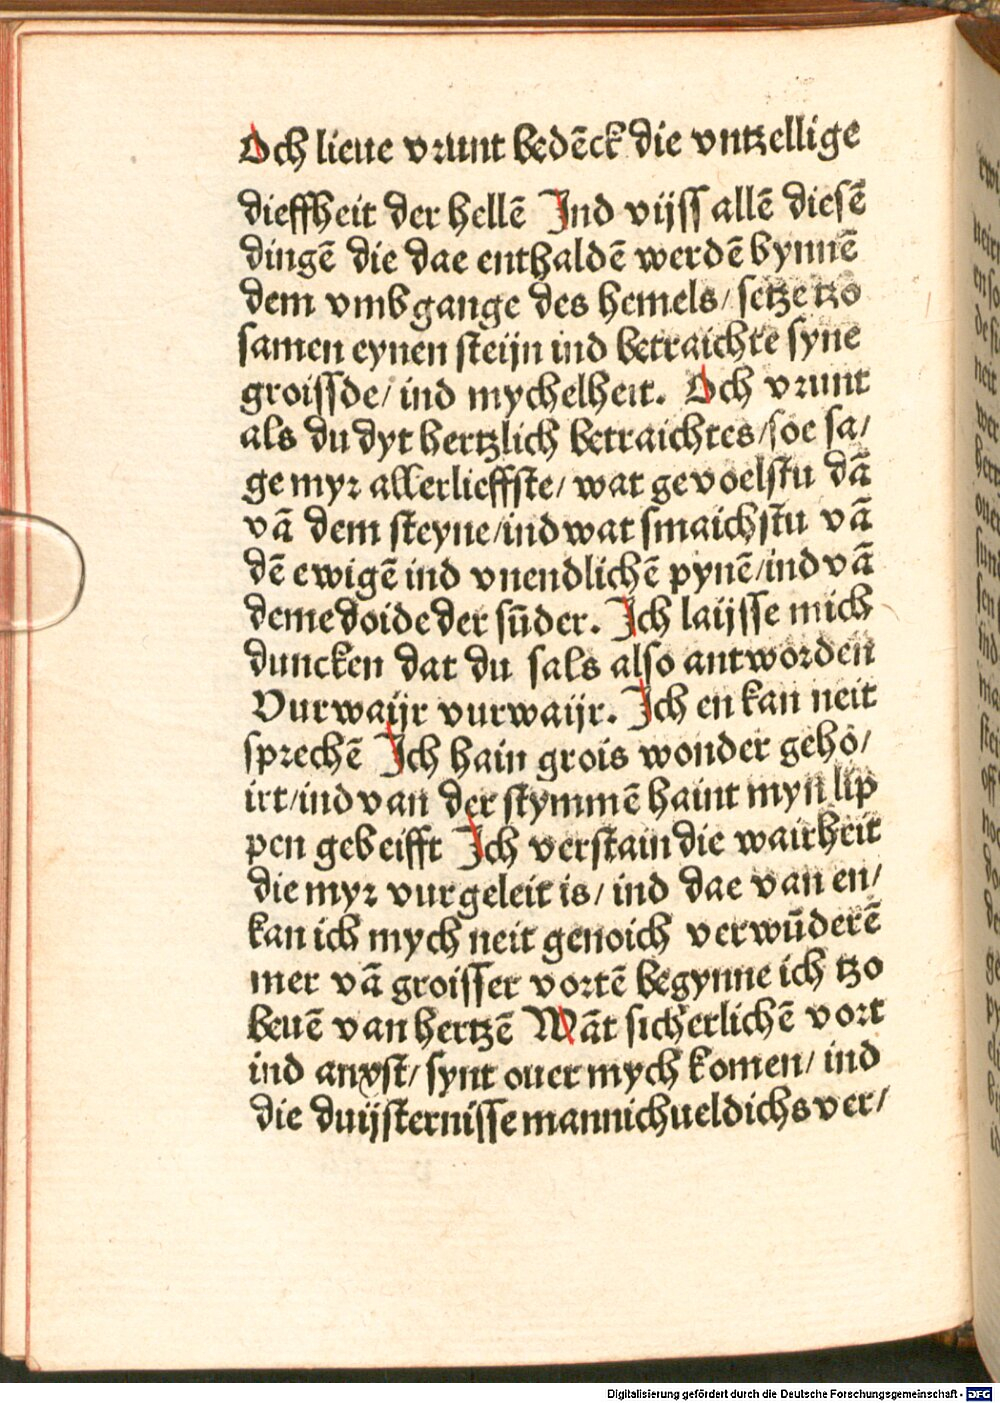 Och lieue vrunt bedēck die vntzellige
dieffheit der hellē Ind vijss allē diesē
dingē die dae enthaldē werdē bynnē
dem vmbgange des hemels/ setze tzo
samen eynen steijn ind betraichte syne
groissde/ ind mychelheit. Och vrunt
als du dyt hertzlich betraichtes/soe sa/
ge myr allerlieffste/ wat gevoelstu dā
vā dem steyne/ind wat smaichstu vā
dē ewigē ind vnendlichē pynē/ind vā
deme doide der sūder. Ich laijsse mich
duncken dat du sals also antworden
Vurwaijr vurwaijr. Ich en kan neit
sprechē Ich hain grois wonder gehö/
irt/ind van der stymmē haint myn lip
pen gebeifft Ich verstain die wairheit
die myr vurgeleit is/ ind dae van en/
kan ich mych neit genoich verwūderē
mer vā groisser vortē begynne ich tzo
beuē van hertzē Wāt sicherlichē vort
ind anxst/ synt ouer mych komen/ ind
die duijsternisse mannichueldichs ver/
Digitalisierung gefördert durch die Deutsche Forschungsgemeinschaft - DFG